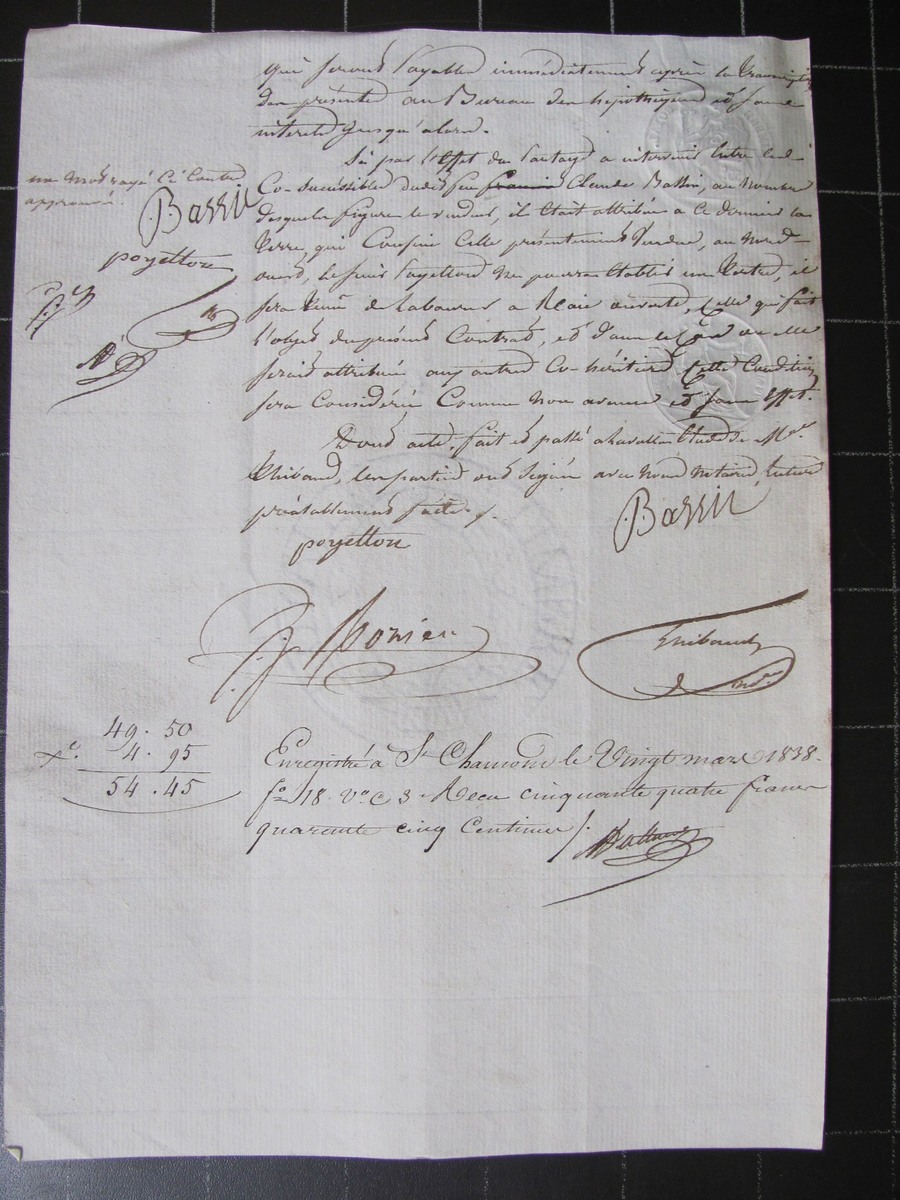 qui seront payables immédiatement après la transcription
des présentes au Bureau des hipothèques et sans
intérêts jusqu'alors.
Si par l'effet du partage a intervenir entre les
Co-successibles dudit feu Claude Bassin, au nombre
desquels figure le vendeur, il était attribué a ce dernier la
terre qui Confine celle présentement vendue, au nord-
ouest, le sieur poyetton ne pourra établir un
sera tenu de labourer a Raie ouverte, celle qui fait
l'objet du présent Contrat, et dans le Cas ou elle
serait attribuée aux autres Co-héritiers cette Condition
sera Considérée Comme non avenue et sans effet.
Dont acte, fait et passé étude de Me
Thibaud, les parties ont signé avec nous notaires, lecture
préalablement faite.
un mot rayé Ci Contre
approuvé.
Bassin
poyetton
poyetton
Bassin
Thibaud
49.50
4.95
54.45
Enregistré à St Chamond le Vingt mars 1838.
fo 18 Vo C 3. Reçu cinquante quatre francs
quarante cinq Centimes